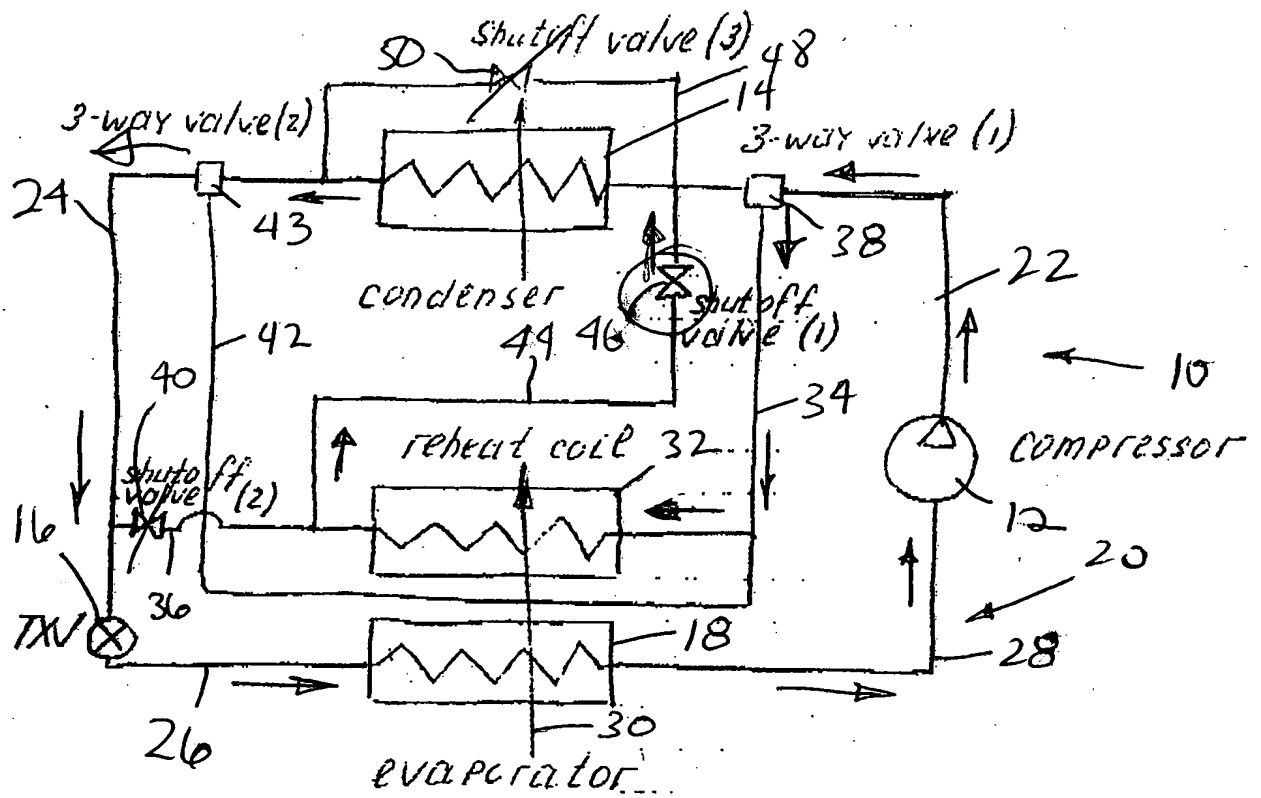 shutoff valve (3)
50
48
14
3-way valve (2)
3-way valve (1)
24
43
38
condenser
22
shutoff
valve (1)
46
44
42
10
40
34
reheat coil
32
compressor
shutoff
valve (2)
16
12
20
36
TXV
18
28
30
26
evaporator